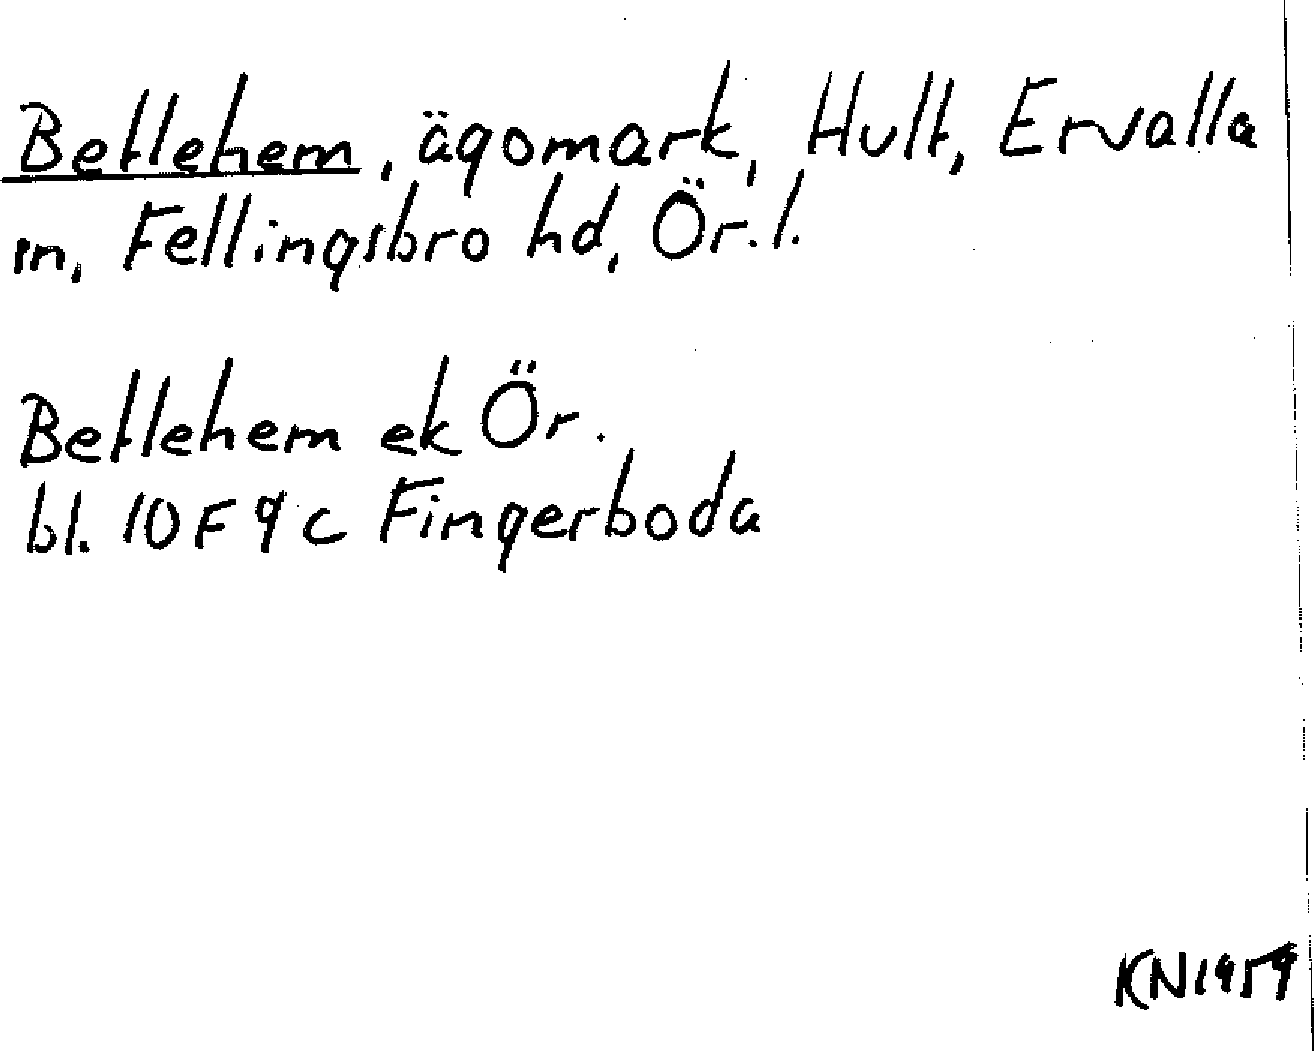 Betlehem, ägomark, Hult, Ervalla
sn, Fellingsbro hd, Ör. l.
Betlehem ek Ör.
bl. 10 F 9 c Fingerboda
KN 1959